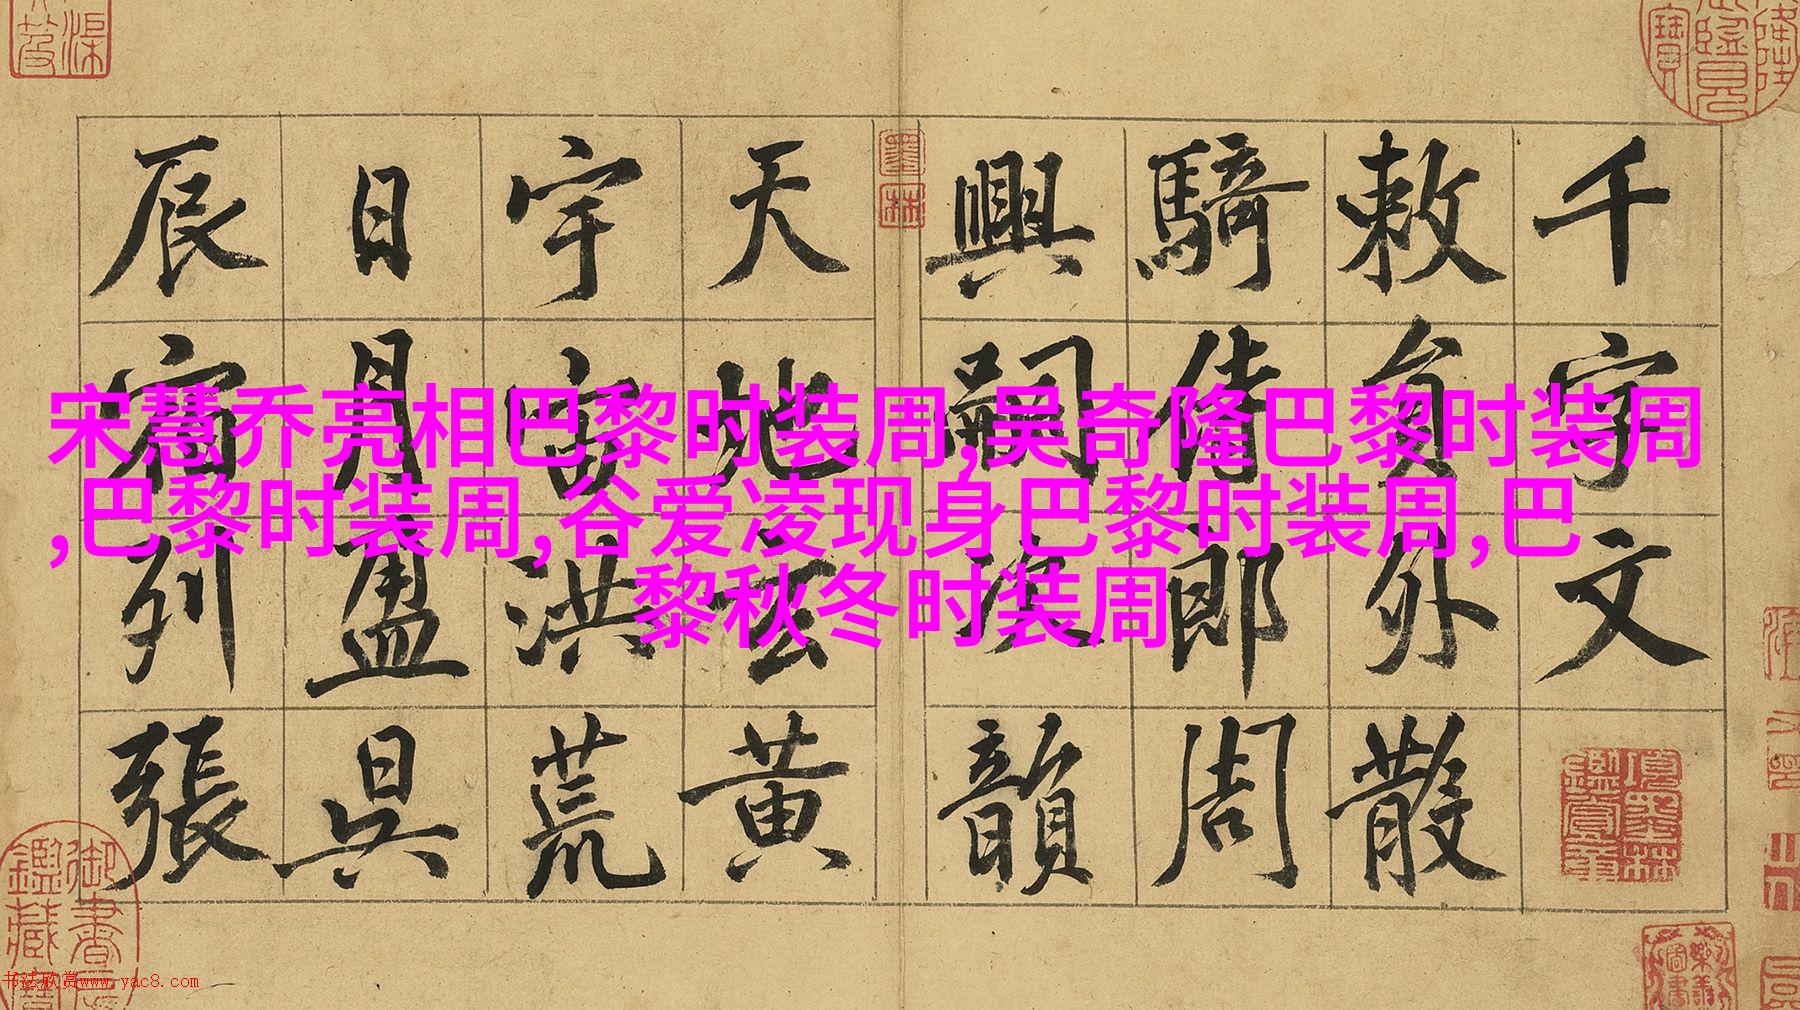 千字文
敕員外散
騎侍郎周
興嗣次韻
天地玄黃
宇宙洪荒
日月盈昃
辰宿列張
宋慧乔亮相巴黎时装周,吴奇隆巴黎时装周
,巴黎时装周,谷爱凌现身巴黎时装周,巴
黎秋冬时装周
书法欣赏www.yac8.com